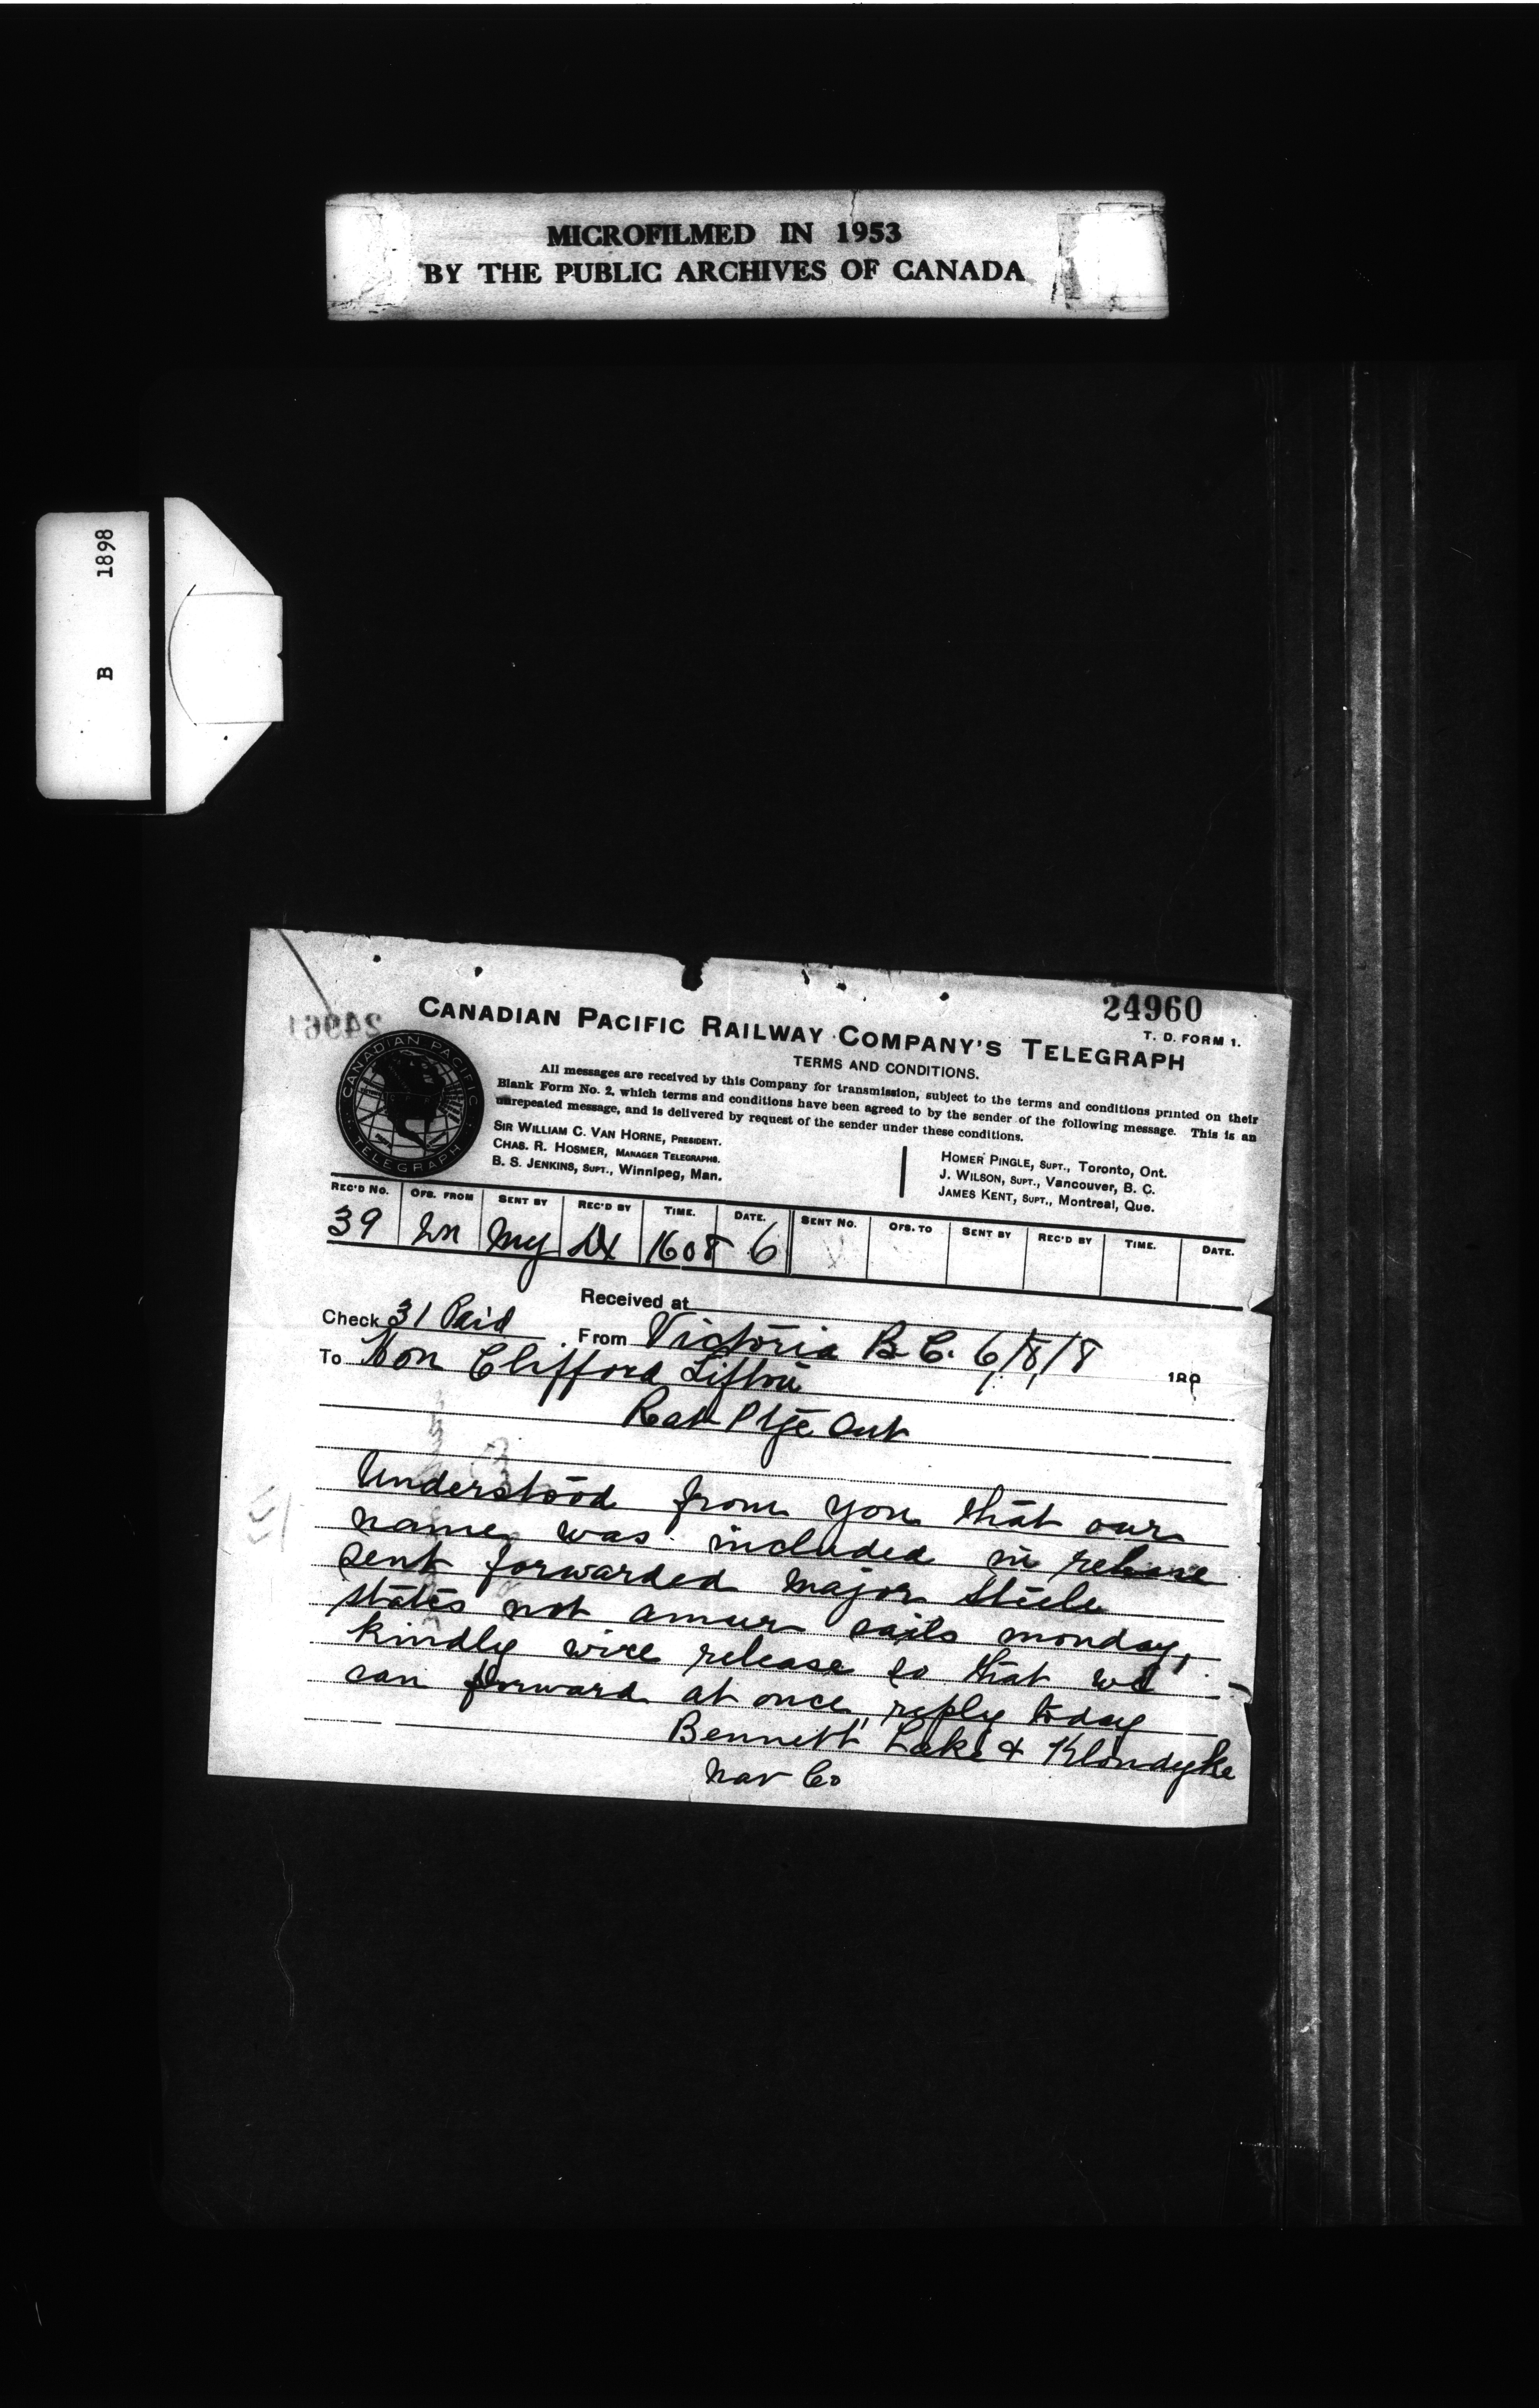 MICROFILMED IN 1953
BY THE PUBLIC ARCHIVES OF CANADA
B 1898
24960
T. D. FORM 1.
24961
CANADIAN PACIFIC RAILWAY COMPANY'S TELEGRAPH
TERMS AND CONDITIONS.
All messages are received by this Company for transmission, subject to the terms and conditions printed on their
Blank Form No. 2, which terms and conditions have been agreed to by the sender of the following message. This is an
unrepeated message, and is delivered by request of the sender under these conditions.
CANADIAN PACIFIC
TELEGRAPH
SIR WILLIAM C. VAN HORNE, PRESIDENT.
CHAS. R. HOSMER, MANAGER TELEGRAPHS.
B. S. JENKINS, SUPT., Winnipeg, Man.
HOMER PINGLE, SUPT., Toronto, Ont.
J. WILSON, SUPT., Vancouver, B. C.
JAMES KENT, SUPT., Montreal, Que.
REC'D NO. OFS. FROM SENT BY REC'D BY TIME. DATE. SENT NO. OFS. TO SENT BY REC'D BY TIME. DATE.
39 My 1608 6
Received at
Check 31 Paid From Victoria B.C. 6/8/8 189
To Hon Clifford Sifton
Rat Ptge Ont
Understood from you that our
name was included in release
sent forwarded Major Steele
states not amur sails monday,
kindly wire release so that we
can forward at once, reply today
Bennett Lake & Klondyke
Nav Co